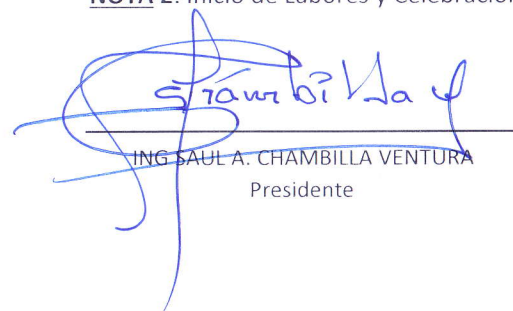 NOTA 2: Inicio de Labores y Celebración
ING SAUL A. CHAMBILLA VENTURA
Presidente